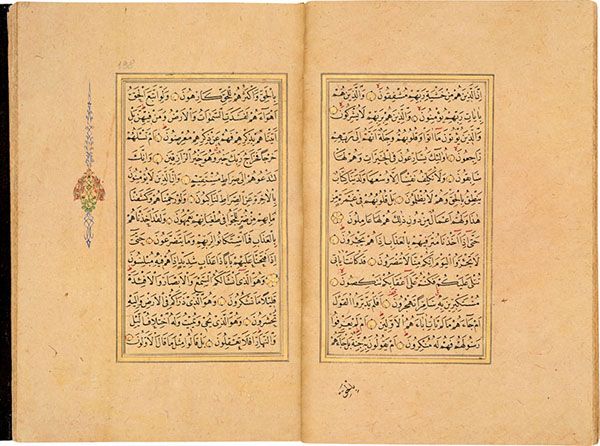 اِنَّ الَّذِينَ هُمْ مِنْ خَشْيَةِ رَبِّهِمْ مُشْفِقُونَ وَالَّذِينَ هُمْ
بِاٰيَاتِ رَبِّهِمْ يُؤْمِنُونَ وَالَّذِينَ هُمْ بِرَبِّهِمْ لَا يُشْرِكُونَ
وَالَّذِينَ يُؤْتُونَ مَا اٰتَوْا وَقُلُوبُهُمْ وَجِلَةٌ اَنَّهُمْ اِلٰى رَبِّهِمْ
رَاجِعُونَ اُولٰئِكَ يُسَارِعُونَ فِي الْخَيْرَاتِ وَهُمْ لَهَا
سَابِقُونَ وَلَا نُكَلِّفُ نَفْسًا اِلَّا وُسْعَهَا وَلَدَيْنَا كِتَابٌ
يَنْطِقُ بِالْحَقِّ وَهُمْ لَا يُظْلَمُونَ بَلْ قُلُوبُهُمْ فِي غَمْرَةٍ مِنْ
هٰذَا وَلَهُمْ اَعْمَالٌ مِنْ دُونِ ذٰلِكَ هُمْ لَهَا عَامِلُونَ
حَتّٰى اِذَا اَخَذْنَا مُتْرَفِيهِمْ بِالْعَذَابِ اِذَا هُمْ يَجْـَٔرُونَ
لَا تَجْـَٔرُوا الْيَوْمَ اِنَّكُمْ مِنَّا لَا تُنْصَرُونَ قَدْ كَانَتْ اٰيَاتِي
تُتْلٰى عَلَيْكُمْ فَكُنْتُمْ عَلٰى اَعْقَابِكُمْ تَنْكِصُونَ
مُسْتَكْبِرِينَ بِهِ سَامِرًا تَهْجُرُونَ اَفَلَمْ يَدَّبَّرُوا الْقَوْلَ
اَمْ جَاءَهُمْ مَا لَمْ يَأْتِ اٰبَاءَهُمُ الْاَوَّلِينَ اَمْ لَمْ يَعْرِفُوا
رَسُولَهُمْ فَهُمْ لَهُ مُنْكِرُونَ اَمْ يَقُولُونَ بِهِ جِنَّةٌ بَلْ جَاءَهُمْ
بِالْحَقِّ وَاَكْثَرُهُمْ لِلْحَقِّ كَارِهُونَ وَلَوِ اتَّبَعَ الْحَقُّ
اَهْوَاءَهُمْ لَفَسَدَتِ السَّمٰوَاتُ وَالْاَرْضُ وَمَنْ فِيهِنَّ بَلْ
اَتَيْنَاهُمْ بِذِكْرِهِمْ فَهُمْ عَنْ ذِكْرِهِمْ مُعْرِضُونَ اَمْ تَسْـَٔلُهُمْ
خَرْجًا فَخَرَاجُ رَبِّكَ خَيْرٌ وَهُوَ خَيْرُ الرَّازِقِينَ وَاِنَّكَ
لَتَدْعُوهُمْ اِلٰى صِرَاطٍ مُسْتَقِيمٍ وَاِنَّ الَّذِينَ لَا يُؤْمِنُونَ
بِالْاٰخِرَةِ عَنِ الصِّرَاطِ لَنَاكِبُونَ وَلَوْ رَحِمْنَاهُمْ وَكَشَفْنَا
مَا بِهِمْ مِنْ ضُرٍّ لَلَجُّوا فِي طُغْيَانِهِمْ يَعْمَهُونَ وَلَقَدْ اَخَذْنَاهُمْ
بِالْعَذَابِ فَمَا اسْتَكَانُوا لِرَبِّهِمْ وَمَا يَتَضَرَّعُونَ حَتّٰى
اِذَا فَتَحْنَا عَلَيْهِمْ بَابًا ذَا عَذَابٍ شَدِيدٍ اِذَا هُمْ فِيهِ مُبْلِسُونَ
وَهُوَ الَّذِي اَنْشَأَ لَكُمُ السَّمْعَ وَالْاَبْصَارَ وَالْاَفْـِٔدَةَ
قَلِيلًا مَا تَشْكُرُونَ وَهُوَ الَّذِي ذَرَاَكُمْ فِي الْاَرْضِ وَاِلَيْهِ
تُحْشَرُونَ وَهُوَ الَّذِي يُحْيِي وَيُمِيتُ وَلَهُ اخْتِلَافُ الَّيْلِ
وَالنَّهَارِ اَفَلَا تَعْقِلُونَ بَلْ قَالُوا مِثْلَ مَا قَالَ الْاَوَّلُونَ